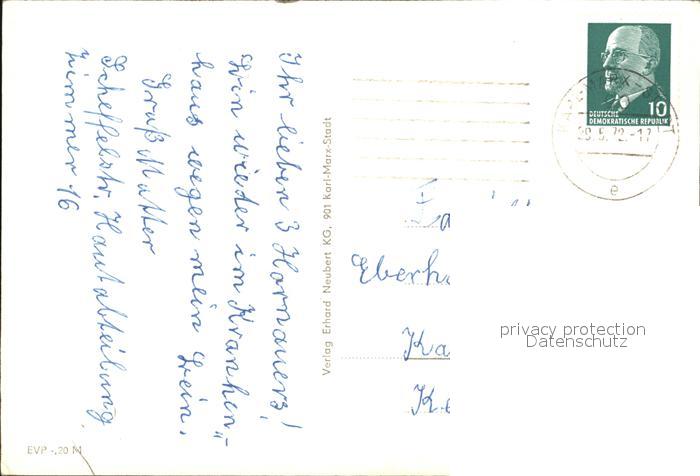 Ihr lieben 3 Hornauers!
Bin wieder im Kranken-
haus wegen mein Bein.
Gruß Mutter
Scheffelstr. Hautabteilung
Zimmer 16
Verlag Erhard Neubert KG, 901 Karl-Marx-Stadt
EVP -,20 M
10
DEUTSCHE
DEMOKRATISCHE REPUBLIK
KARL-MARX-
28.6.72.-17
e
Eberh
Ka
privacy protection
Datenschutz